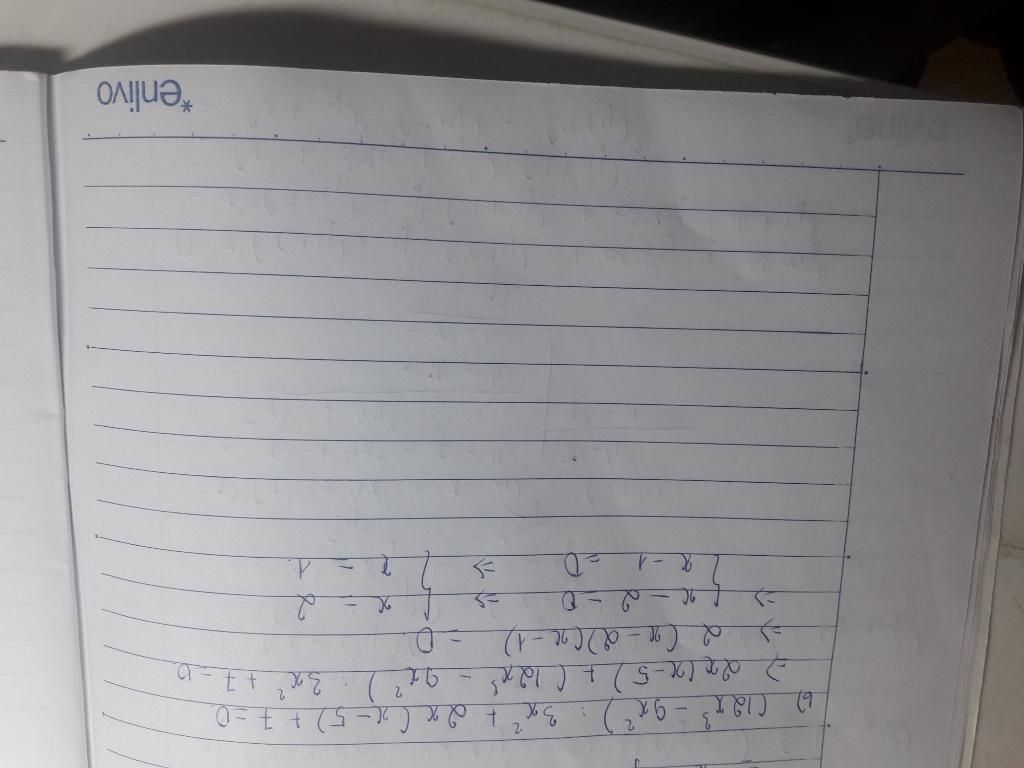 b) (12x³ - 9x²) : 3x² + 2x(x-5) + 7 = 0
=> 2x(x-5) + (12x³ - 9x²) : 3x² + 7 = 0
=> 2(x-2)(x-1) = 0
=> [ x - 2 = 0 => [ x = 2
[ x - 1 = 0 => [ x = 1.
*enlivo